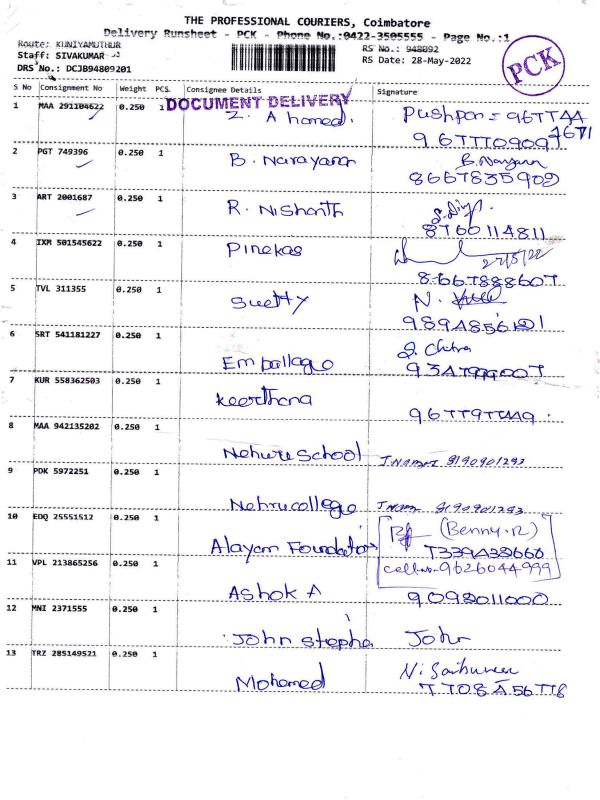 THE PROFESSIONAL COURIERS, Coimbatore
Delivery Runsheet - PCK - Phone No.:0422-3505555 - Page No.:1
Route: KUNIYAMUTHUR
Staff: SIVAKUMAR
DRS No.: DCJB94809201
RS No.: 948092
RS Date: 28-May-2022
PCK
S No Consignment No Weight PCS. Consignee Details Signature
DOCUMENT DELIVERY
1 MAA 291104622 0.250 1 Z. Ahamed. Pushpa
2 PGT 749396 0.250 1 B. Narayanan B. Narayanan
8667835902
3 ART 2001687 0.250 1 R. Nishanth
8760114811
4 IXM 501545622 0.250 1 Pinekas
8667888607
5 TVL 311355 0.250 1 Suetty N.
6 SRT 541181227 0.250 1 Emballage S. Chitra
7 KUR 558362503 0.250 1 Keerthana
8 MAA 942135202 0.250 1 Nehru School 8190901293
9 PDK 5972251 0.250 1 Nehru college 8190901293
10 EDQ 25551512 0.250 1 Alayam Foundation (Benny.R)
7339438660
Cell no. 9626044999
11 VPL 213865256 0.250 1 Ashok A
12 MNI 2371555 0.250 1 John Stepha John
13 TRZ 285149521 0.250 1 Mohamed
7708456778